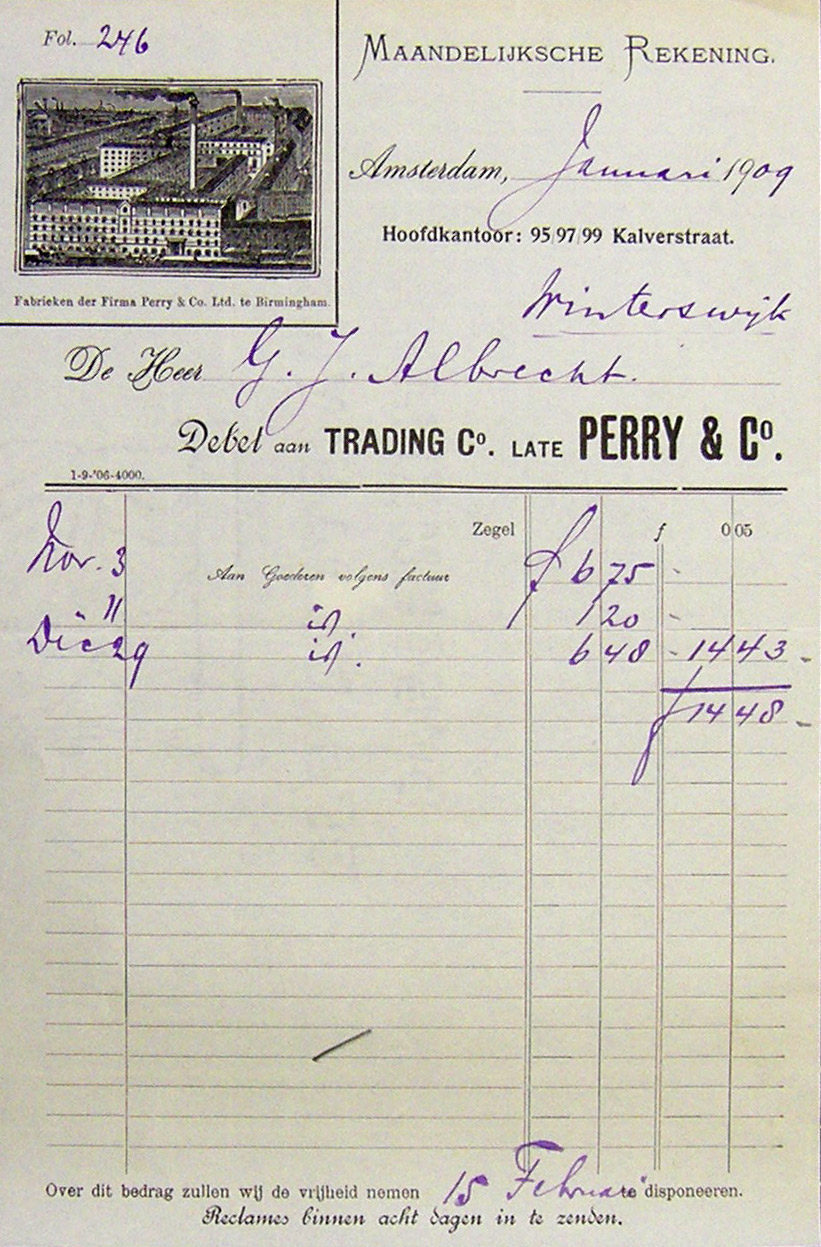 Fol. 246
MAANDELIJKSCHE REKENING.
Amsterdam, Januari 1909
Hoofdkantoor: 95/97/99 Kalverstraat.
Fabrieken der Firma Perry & Co. Ltd. te Birmingham.
Winterswijk
De Heer G. J. Albrecht.
Debet aan TRADING Co. LATE PERRY & Co.
1-9-'06-4000.
Zegel f 0 05
Nov. 3 Aan Goederen volgens factuur f 6 75 -
" 11 id. 1 20 -
Dec 29 id. 6 48 - 14 43 -
f 14 48 -
Over dit bedrag zullen wij de vrijheid nemen 15 Februari te disponeeren.
Reclames binnen acht dagen in te zenden.